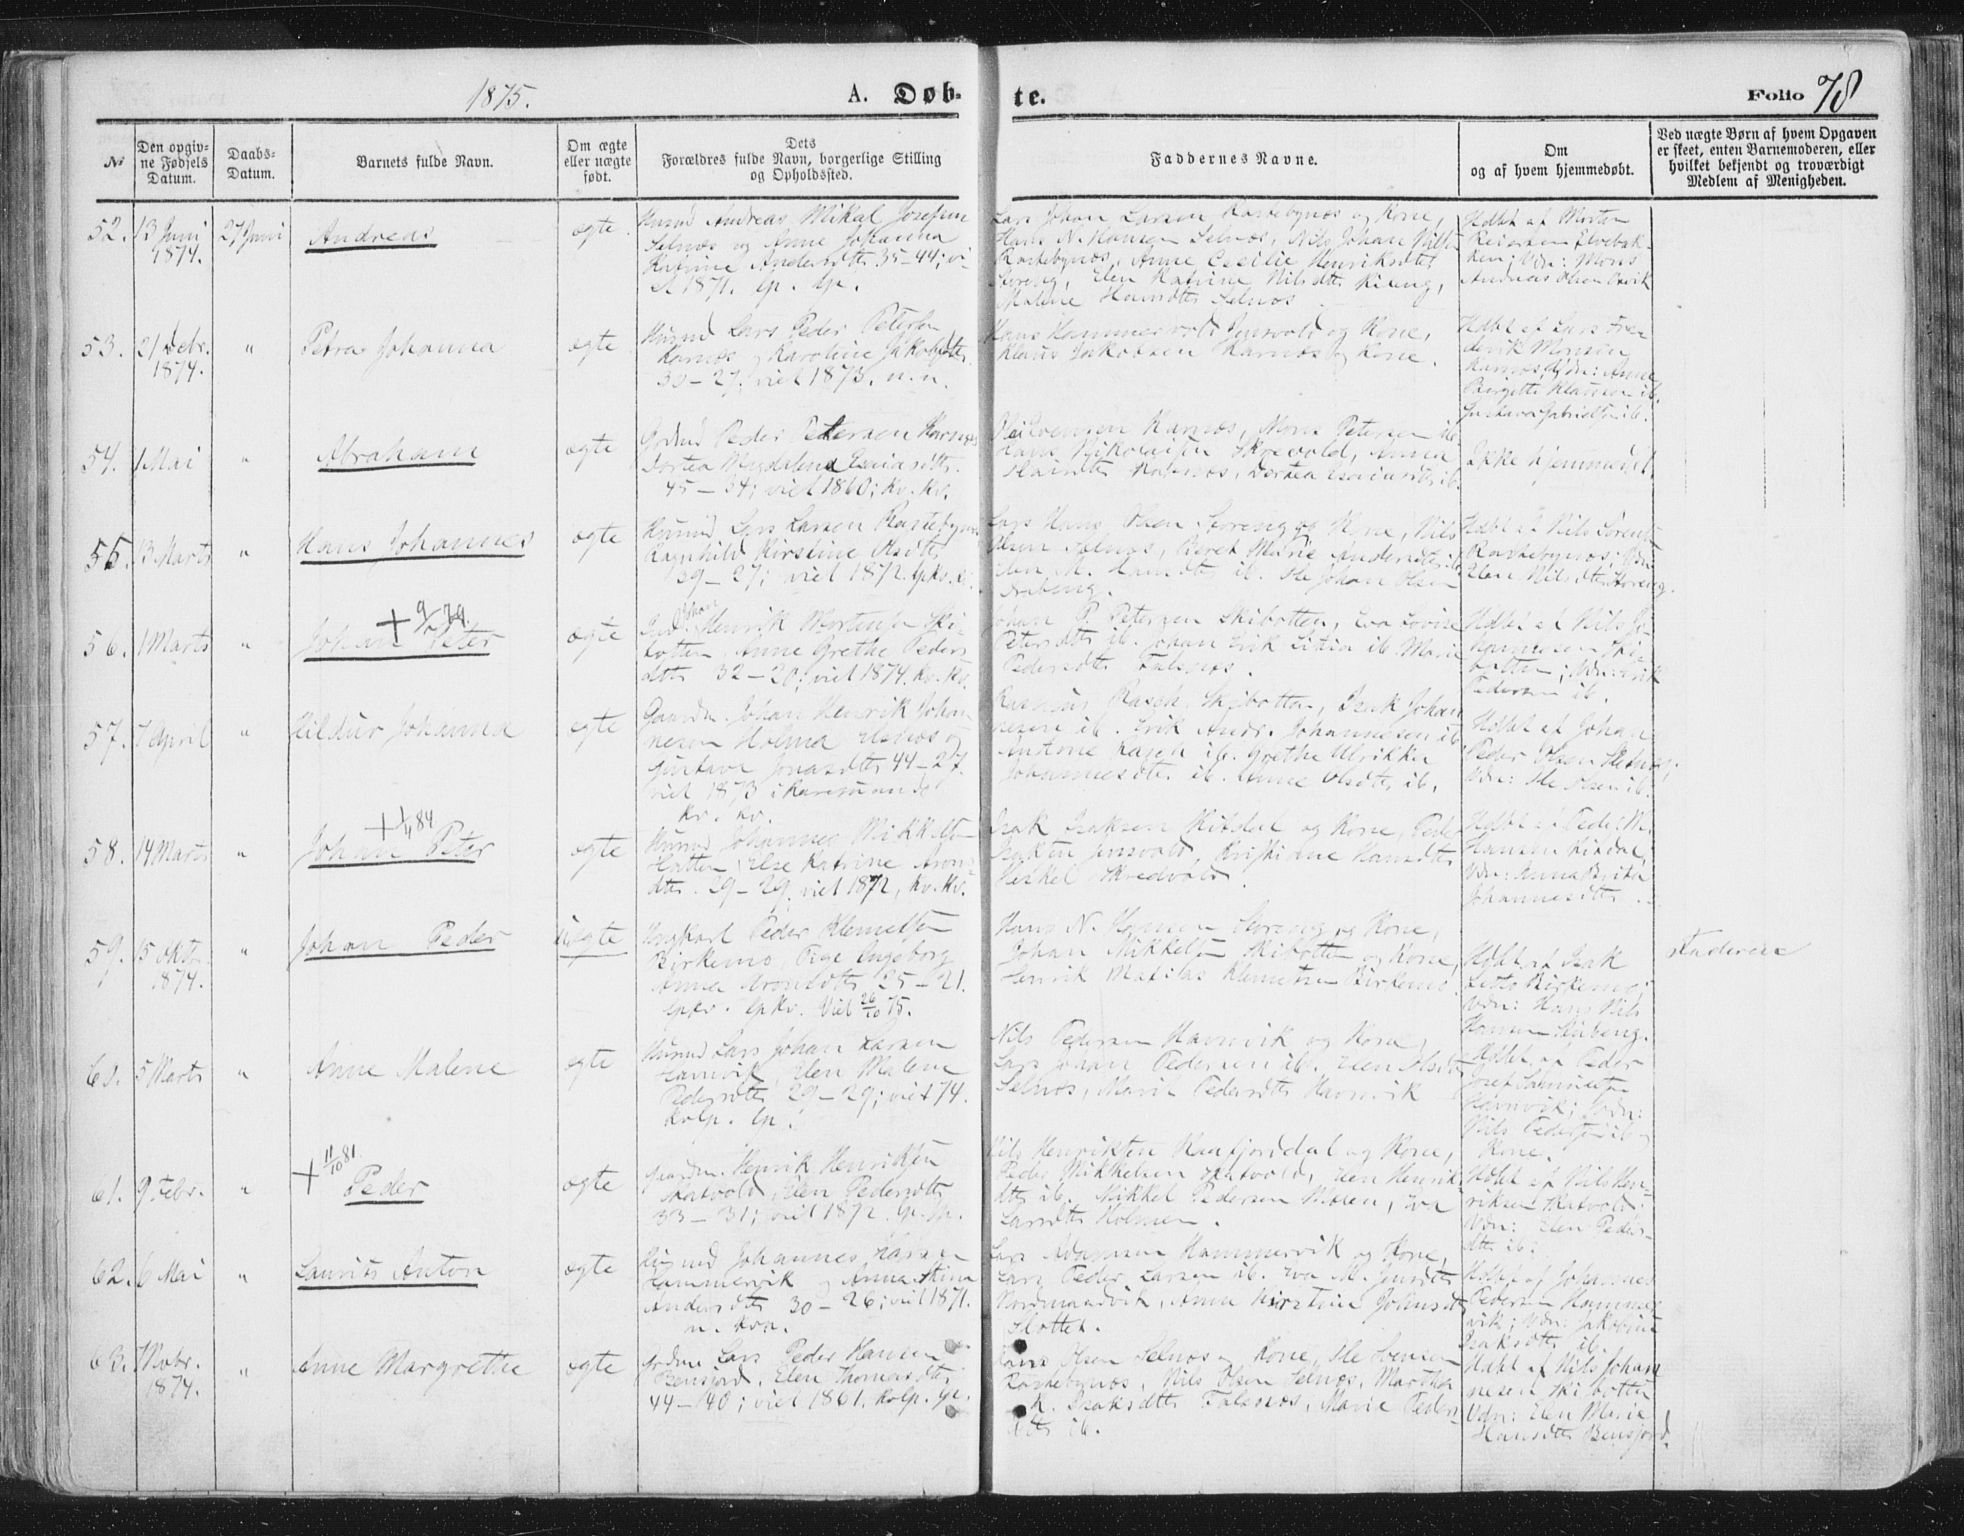 1875.
A. Døb-
te.
Folio 78
№
Den opgiv-
ne Fødsels
Datum.
Daabs-
Datum.
Barnets fulde Navn.
Om ægte
eller uægte
født.
Dets
Forældres fulde Navn, borgerlige Stilling
og Opholdssted.
Faddernes Navne.
Om
og af hvem hjemmedøbt.
Ved uægte Børn af hvem Opgaven
er skeet, enten Barnemoderen, eller
hvilket bekjendt og troværdigt
Medlem af Menigheden.
52. 13 Juni 27 Juni Andreas ægte
1874.
Husmd Andreas Mikal Josefsen
Selnæs og Anne Johanna
Katrine Andersdtr 35-44; vi-
et 1871. lp. lp.
Lars Johan Larsen Rastebynæs og Kone,
Hans N. Hansen Selnæs, Nils Johan
Rastebynæs, Anne Cecilie Henriksdtr
Storeng, Elen Katrine Nilsdtr
Malene Hansdtr Selnæs
Hdbt af Morten
Reiersen Elvebak-
ken; Vdn: Mons
Andreas Olsen
53. 21 Febr. " Petra Johanna ægte
1874.
Husmd Lars Peder Petersen
Karnæs og Karoline Jakobsdtr
30-27. viet 1873. n. n.
Hans Hammervold Jensvold og Kone,
Klaus Jakobsen Karnæs og Kone.
Hdbt af Lars Fre-
derik Monsen
Karnæs; Vdn: Anne
Birgitte Klausen ib.
54. 1 Mai " Abraham ægte
Peder Petersen Karnæs
Dortea Magdalena Esaiasdtr.
45-34; viet 1860; kv. kv.
Karnæs, Mons Petersen ib.
Hans Nikolaisen Skrevold, Anna
Hansdtr Karnæs, Dortea Esaiasdtr ib.
Ikke hjemmedbt.
55. 13 Marts " Hans Johannes ægte
Husmd Lars Larsen Rastebynæs
Ragnhild Kirstine Olsdtr
39-27; viet 1872.
Lars Hans Olsen Storeng og Kone, Nils
Olsen Selnæs, Beret Marie Andersdtr ib.
Elen M. Hansdtr ib. Ole Johan Olsen
Hdbt af Nils
Rastebynæs; Vdn:
Elen Nilsdtr Storeng.
+ 9/ 79.
56. 1 Marts " Johan Peter ægte
Johan
Henrik Mortensen Ski-
botten, Anne Grethe Peders
dtr 32-20; viet 1874. kv. kv.
Johan P. Petersen Skibotten, Eva Lovise
Petersdtr ib. Johan Erik ib Marie
Pedersdtr Falsnæs.
Hdbt af Nils Jo-
hannesen Ski-
botten; Vdn: Erik
Pedersen ib.
57. 7 April " Hildur Johanna ægte
Gaardm. Johan Henrik Johan-
nesen Holma og
Gustava Jonasdtr 44-27.
viet 1873 i Karesuando
kv. kv.
Rasmus Rasch Skibotten, Isak Johan
nesen ib. Erik Andr. Johannesen ib.
Antone Larsen ib. Grethe Ulrikka
Johannesdtr. ib. Anne Olsdtr ib.
Hdbt af Johan
Peder Olsen
Vdn: Ole Olsen ib.
+ 1/4 84
58. 14 Marts " Johan Peter ægte
Husmd Johannes Mikkelsen
Hatten, Else Katrine Arons-
dtr. 29-29. viet 1872, kv. kv.
Isak Isaksen Kitdal og Kone, Peder
Isaksen Jensvold, Kristiane Hansdtr
Skredvold.
Hdbt af Peder M.
Hansen Kitdal;
Vdn: Anna Brita
Johannesdtr.
59. 5 Oktr. " Johan Peder uægte
1874.
Ungkarl Peder Klemetsen
Birkemo, Pige Ingeborg
Anna Aronsdtr 25-21.
lpkv. lpkv. Viet 26/10 75.
Hans N. Hansen Storeng og Kone,
Johan Mikkelsen Skibotten og Kone,
Henrik Matias Klemetsen Birkemo.
Hdbt af Isak
Birkemo;
Vdn: Hans Nils
Hansen Storeng.
Faderen
60. 5 Marts " Anne Malene ægte
Husmd Lars Johan Larsen
Havnvik, Elen Malene
Pedersdtr 29-29; viet 74.
kvlp. lp.
Nils Pedersen Havnvik og Kone,
Lars Johan Pedersen ib. Elen Olsdtr
Selnæs, Marie Pedersdtr Havnvik
Hdbt af Peder
Josef Samuelsen
Havnvik; Vdn:
Nils Pedersen ib.
Kone.
+ 11/10 81.
61. 9 Febr. " Peder ægte
Gaardm. Henrik Henriksen
Hatvold, Elen Pedersdtr
33-31; viet 1872. lp. lp.
Nils Henriksen Manfjorddal og Kone,
Peder Mikkelsen Hatvold, Elen Henriks-
dtr ib. Mikkel Pedersen Moen, Eva
Larsdtr Holmen.
Hdbt af Nils Hen-
riksen Hatvold
Vdn: Elen Peders-
dtr ib.
62. 6 Mai " Laurits Anton ægte
Husmd Johannes Larsen
Hammervik og Anna Stina
Andersdtr 30-26; viet 1871.
n. kvn.
Lars Adamsen Hammervik og Kone,
Lars Peder Larsen ib. Eva M. Jensdtr
Nordmandvik, Anne Kirstine Johnsdtr
Slottet.
Hdbt af Johannes
Pedersen Hammer-
vik; Vdn: Jakobine
Isaksdtr ib.
63. 1 Novbr. " Anne Margrethe ægte
1874.
Lars Peder Hansen
Bensjord, Elen Thomasdtr
44-40; viet 1861. kvlp. lp.
Hans Olsen Selnæs og Kone, Ole Svensen
Rastebynæs, Nils Olsen Selnæs, Martha
K. Isaksdtr Falsnæs, Marie Peders-
dtr ib.
Hdbt af Nils Johan-
nesen Skibotten
Vdn: Elen Marie
Hansdtr Bensjord.